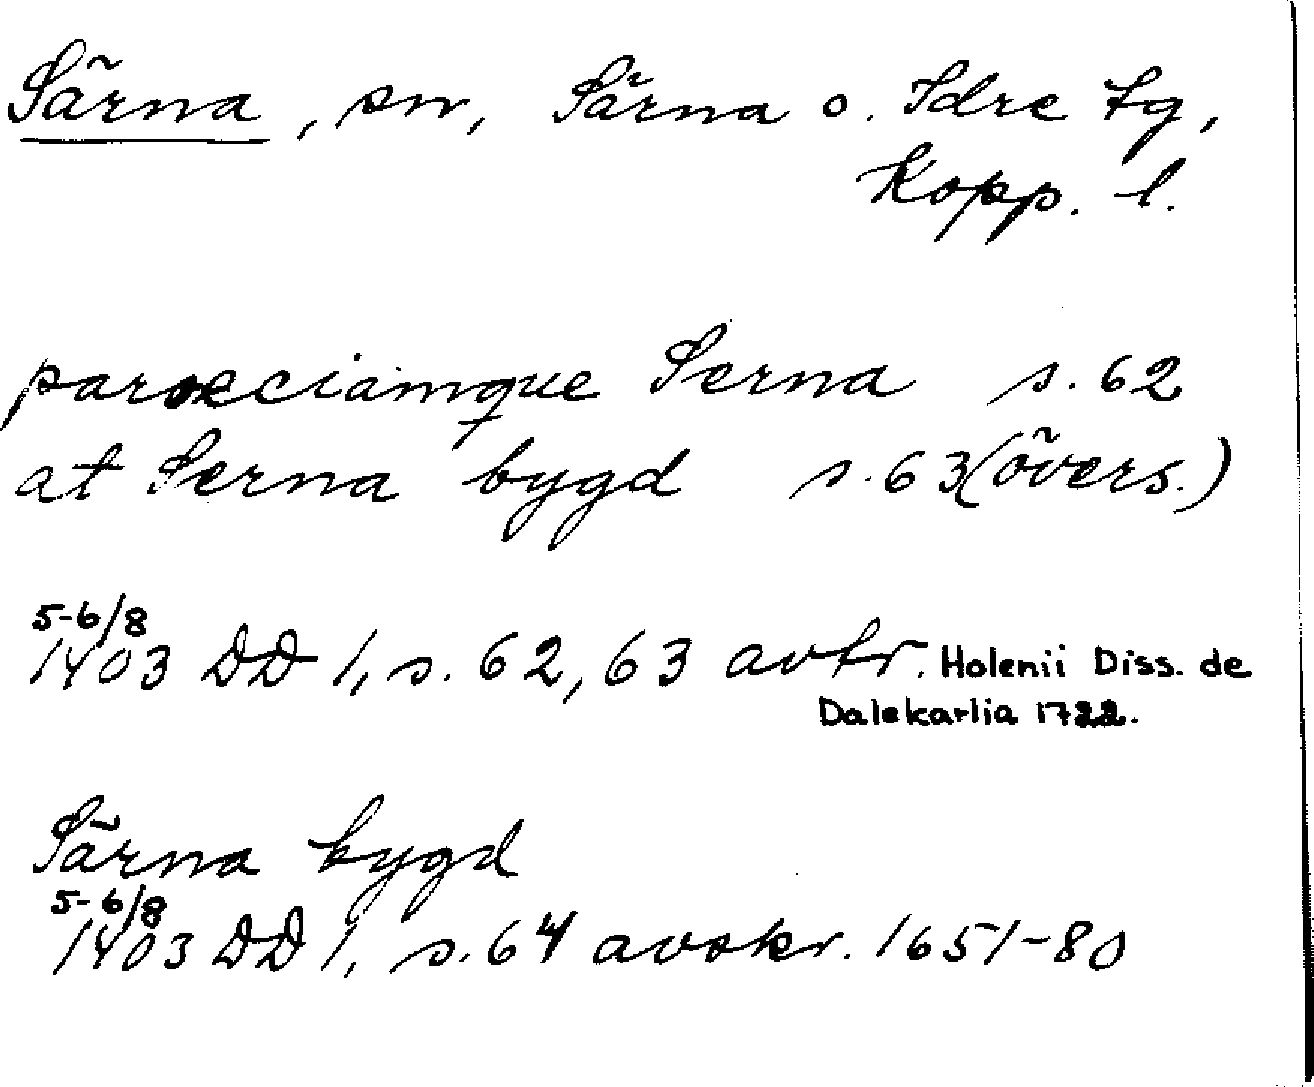 Särna, sn, Särna o. Idre tg,
Kopp. l.
paroeciamque Serna s. 62
at Serna bygd s. 63 (övers.)
5-6/8
1403 DD 1, s. 62, 63 avtr. Holenii Diss. de
Dalekarlia 1722.
Särna bygd
5-6/8
1403 DD 1, s. 64 avskr. 1651-80